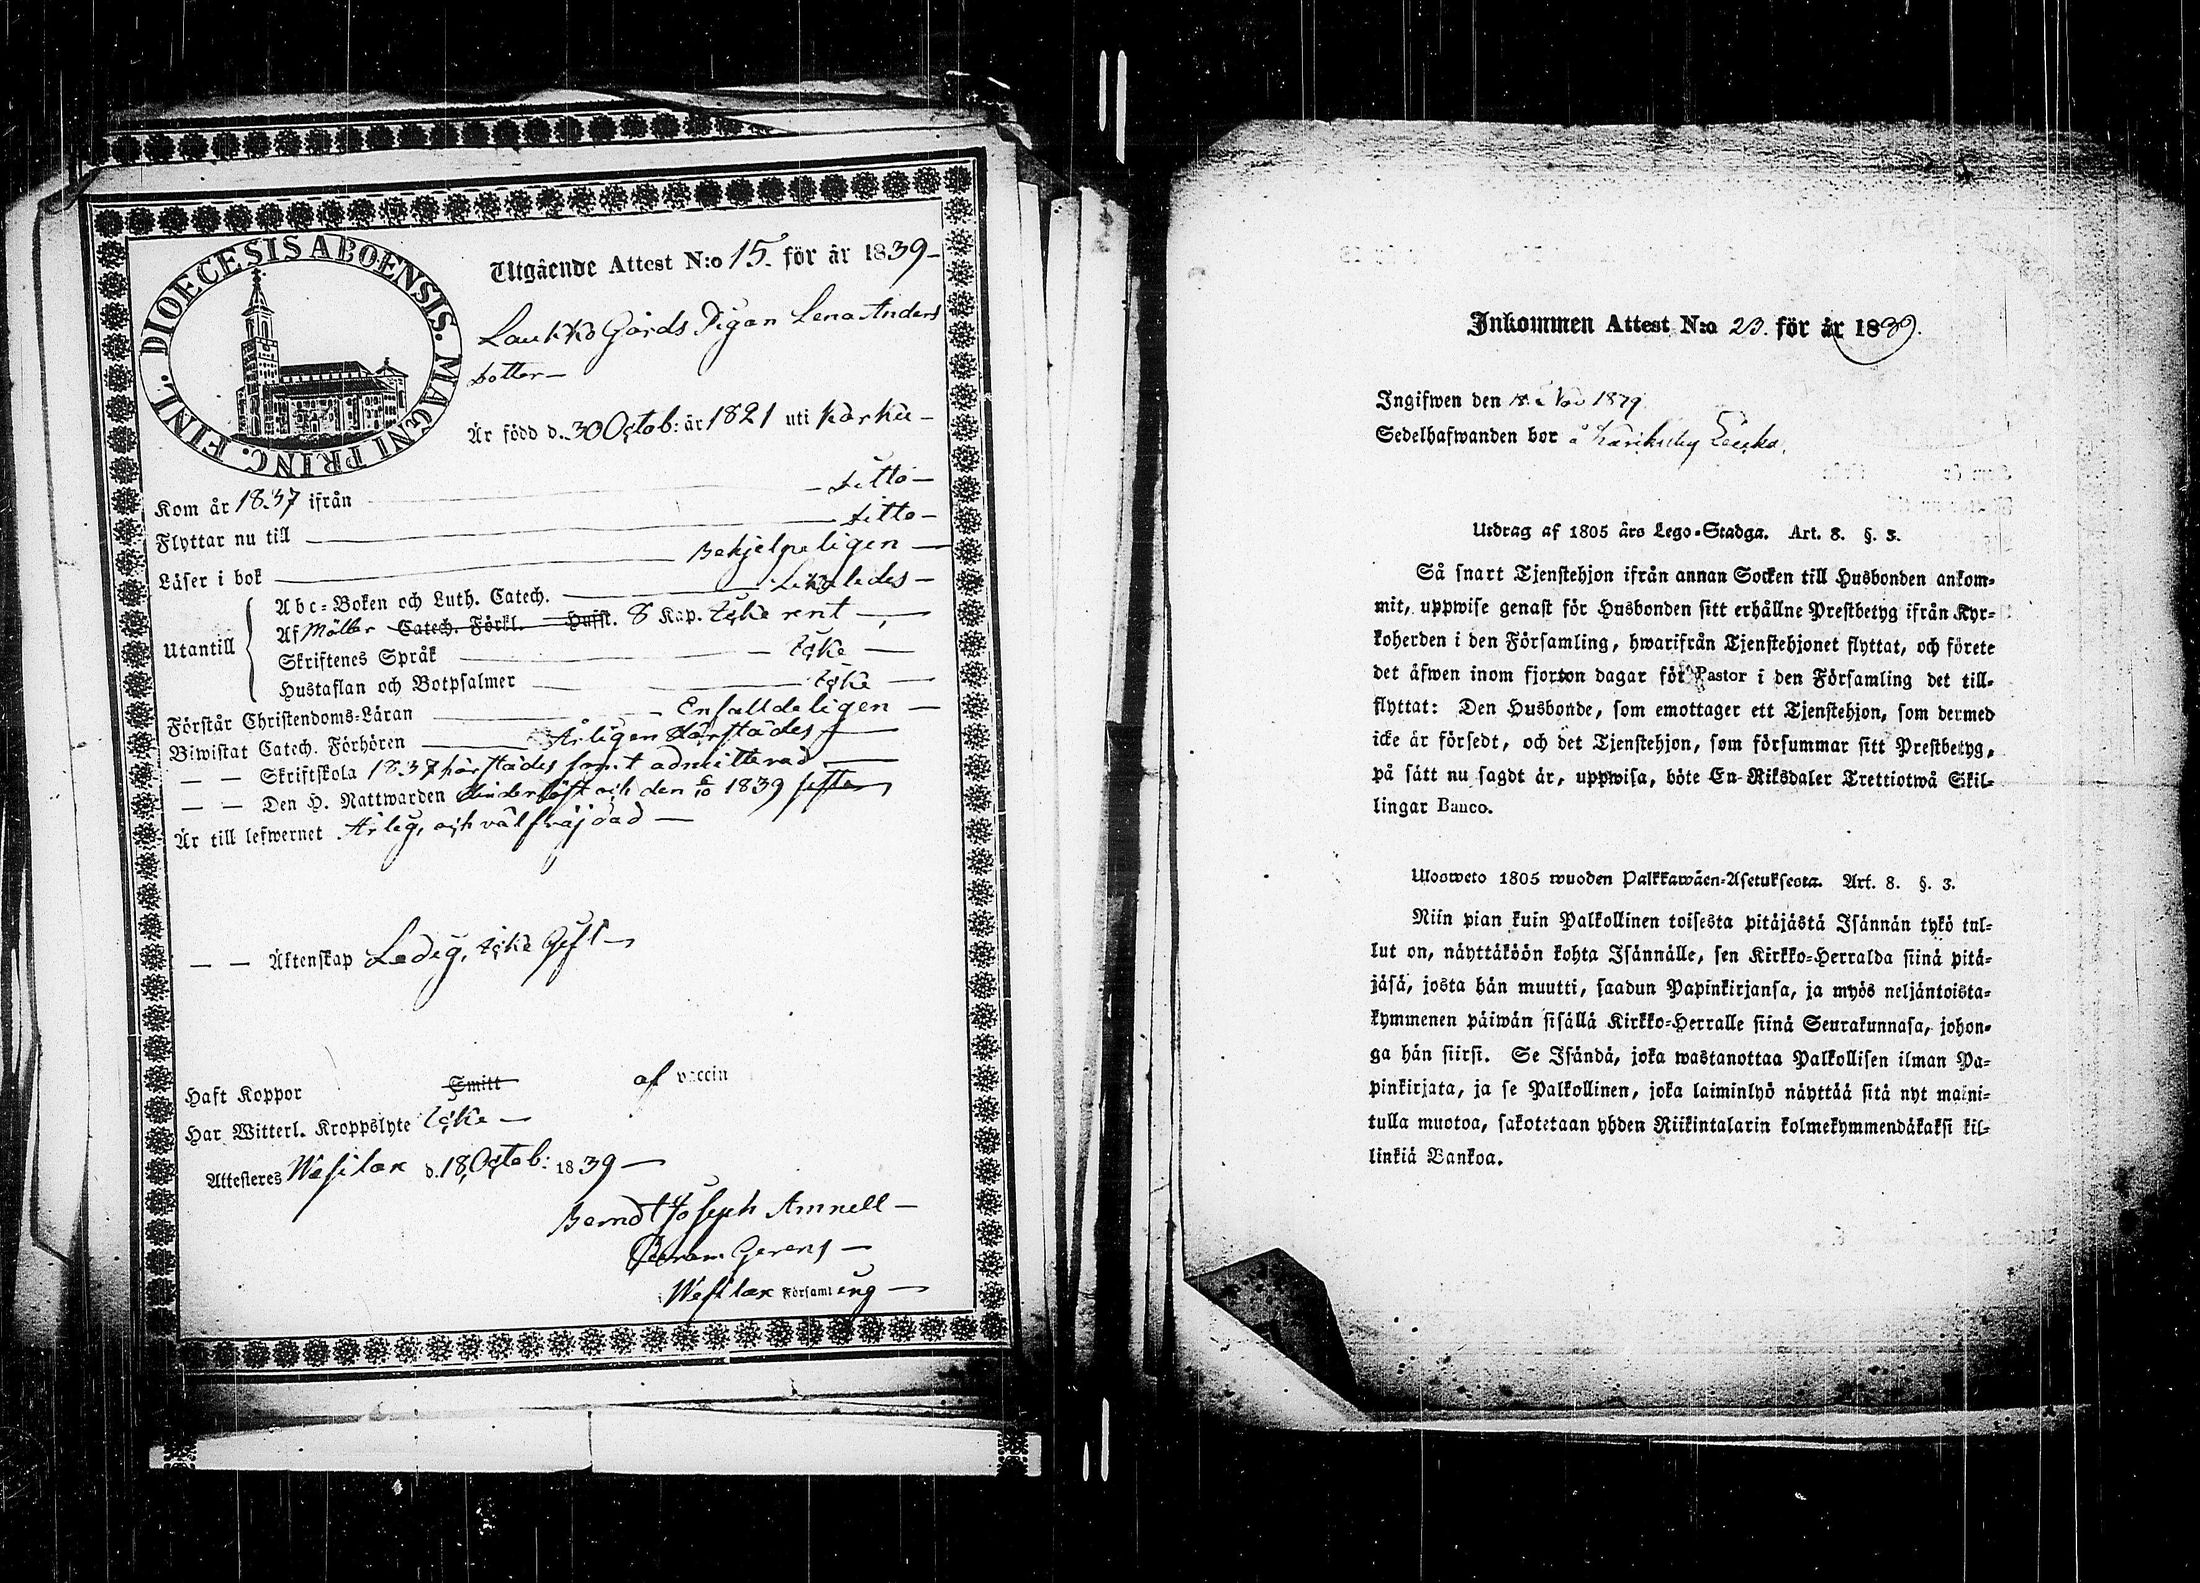 DIOECESIS ABOENSIS. MAGNI PRINC. FINL.
Utgående Attest N:o 15. för år 1839
Laukko Gårds Pigan Lena Anders
dotter
Är född d. 30 Octob: år 1821 uti Karku
Kom år 1837 ifrån ditto
Flyttar nu till ditto
Läser i bok Behjelpeligen
Utantill
Abc-Boken och Luth. Catech. Likaledes
Af Möller Catech. Förkl. Husst. 8 Kap. Icke rent
Skriftenes Språk Icke
Hustaflan och Botpsalmer Icke
Förstår Christendoms-Läran Enfalldeligen
Biwistat Catech. Förhören Årligen Härstädes
— — Skriftskola 1837 härstädes samt admitterad
— — Den H. Nattwarden och den 6/10 1839 sista
Är till lefwernet Ärlig, och välfräjdad
— — Äktenskap Ledig, icke Gift
Haft Koppor Smitt af vaccin
Har Witterl. Kroppslyte Icke
Attesteres Wesilax d. 18 Octob: 1839
Berndt Joseph Amnell
Gerens
i Wesilax Församling
Inkommen Attest N:o 23. för år 1839.
Ingifwen den 18 Nov 1839
Sedelhafwanden bor å
Utdrag af 1805 års Lego-Stadga. Art. 8. §. 3.
Så snart Tjenstehjon ifrån annan Socken till Husbonden ankom-
mit, uppwise genast för Husbonden sitt erhållne Prestbetyg ifrån Kyr-
koherden i den Församling, hwarifrån Tjenstehjonet flyttat, och förete
det äfwen inom fjorton dagar för Pastor i den Församling det till-
flyttat: Den Husbonde, som emottager ett Tjenstehjon, som dermed
icke är försedt, och det Tjenstehjon, som försummar sitt Prestbetyg,
på sätt nu sagdt är, uppwisa, böte En Riksdaler Trettiotwå Skil-
lingar Banco.
Ulosweto 1805 wuoden Palkkawäen-Asetuksesta. Art. 8. §. 3.
Niin pian kuin Palkollinen toisesta pitäjästä Isännän tykö tul-
lut on, näyttäköön kohta Isännälle, sen Kirkko-Herralda siinä pitä-
jäsä, josta hän muutti, saadun Papinkirjansa, ja myös neljäntoista-
kymmenen päiwän sisällä Kirkko-Herralle siinä Seurakunnasa, johon-
ga hän siirsi. Se Isändä, joka wastanottaa Palkollisen ilman Pa-
pinkirjata, ja se Palkollinen, joka laiminlyö näyttää sitä nyt maini-
tulla muotoa, sakotetaan yhden Riikintalarin kolmekymmendäkaksi kil-
linkiä Bankoa.